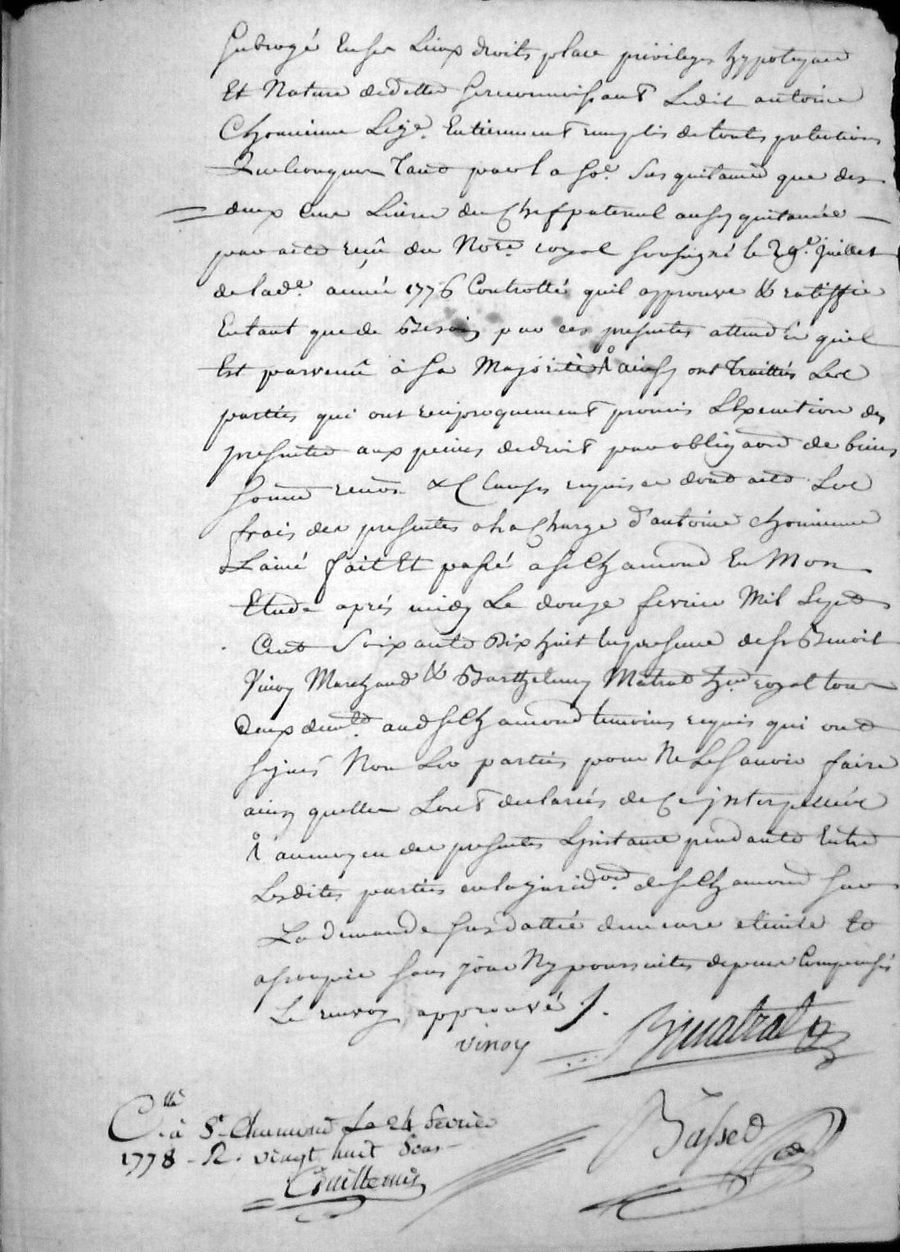 Subrogé En ses Lieux droits place privileges hypoteques
Et Nature de dettes se reconnoissant Ledit antoine
Chomienne Leje. Entierement remplis de toutes pretentions
Quelconques Tant pour la So.e Sus quitancée que des
deux cent Livres du Chef paternel aussy quitancée
par acte reçû du No.re royal soussigné le 29.e Juillet
de lad.e année 1776 Controllé qu'il approuve & ratiffie
Entant que de Besoin par ces presentes attendû qu'il
Est parvenû à Sa Majorité ainsy ont Traittés Les
parties qui ont reciproquement promis L'Execution des
presentes aux peines de droit par obligaõn de biens
Soumõn renõn & Clauses requises dont acte Les
frais des presentes a la Charge d'antoine chomienne
L'ainé fait Et passé a St Chamond En Mon
Etude aprés midy Le douze fevrier Mil Sept
Cent Soixante Dix huit En presence de Sr Benoit
Vinoy Marchand & Barthelemy Matrat h.er royal tous
deux dem.ts aud St Chamond temoins requis qui ont
signés Non Les parties pour Ne Le Savoir faire
ainsy quelles L'ont declarés de Ce jnterpellées
au moyen des presentes L'jnstance pendante Entre
Lesdites parties en la jurid.on de St Chamond sur
La demande Susdattée demeure eteinte &
assoupie sans jour Ny poursuites depens Compensés
Le renvoy approuvé
vinoy Bmatrat
C.llé à St Chamond Le 24 fevrier
1778 - R. vingt huit Sous
Guillemin
Bassed